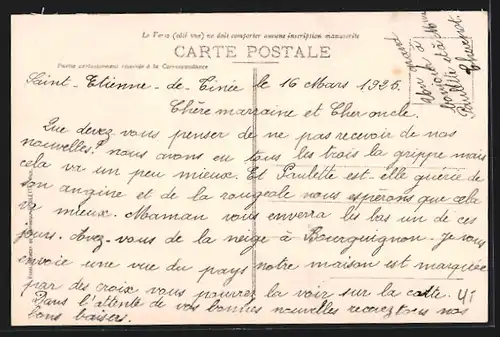 Le Verso (côté vue) ne doit comporter aucune inscription manuscrite
CARTE POSTALE
Partie exclusivement réservée à la Correspondance
Saint-Etienne-de-Tinée le 16 Mars 1926.
Chère marraine et Cher oncle.
Que devez vous penser de ne pas recevoir de nos
nouvelles? nous avons eu tous les trois la grippe mais
cela va un peu mieux. Et Paulette est-elle guérie de
son angine et de la rougeole nous espérons que cela
va mieux. Maman vous enverra les bas un de ces
jours. Avez-vous de la neige à Bourguignon. Je vous
envoie une vue du pays notre maison est marquée
par des croix vous pourrez la voir sur la carte.
Dans l'attente de vos bonnes nouvelles recevez tous nos
bons baisers.
bonjour
Paulette